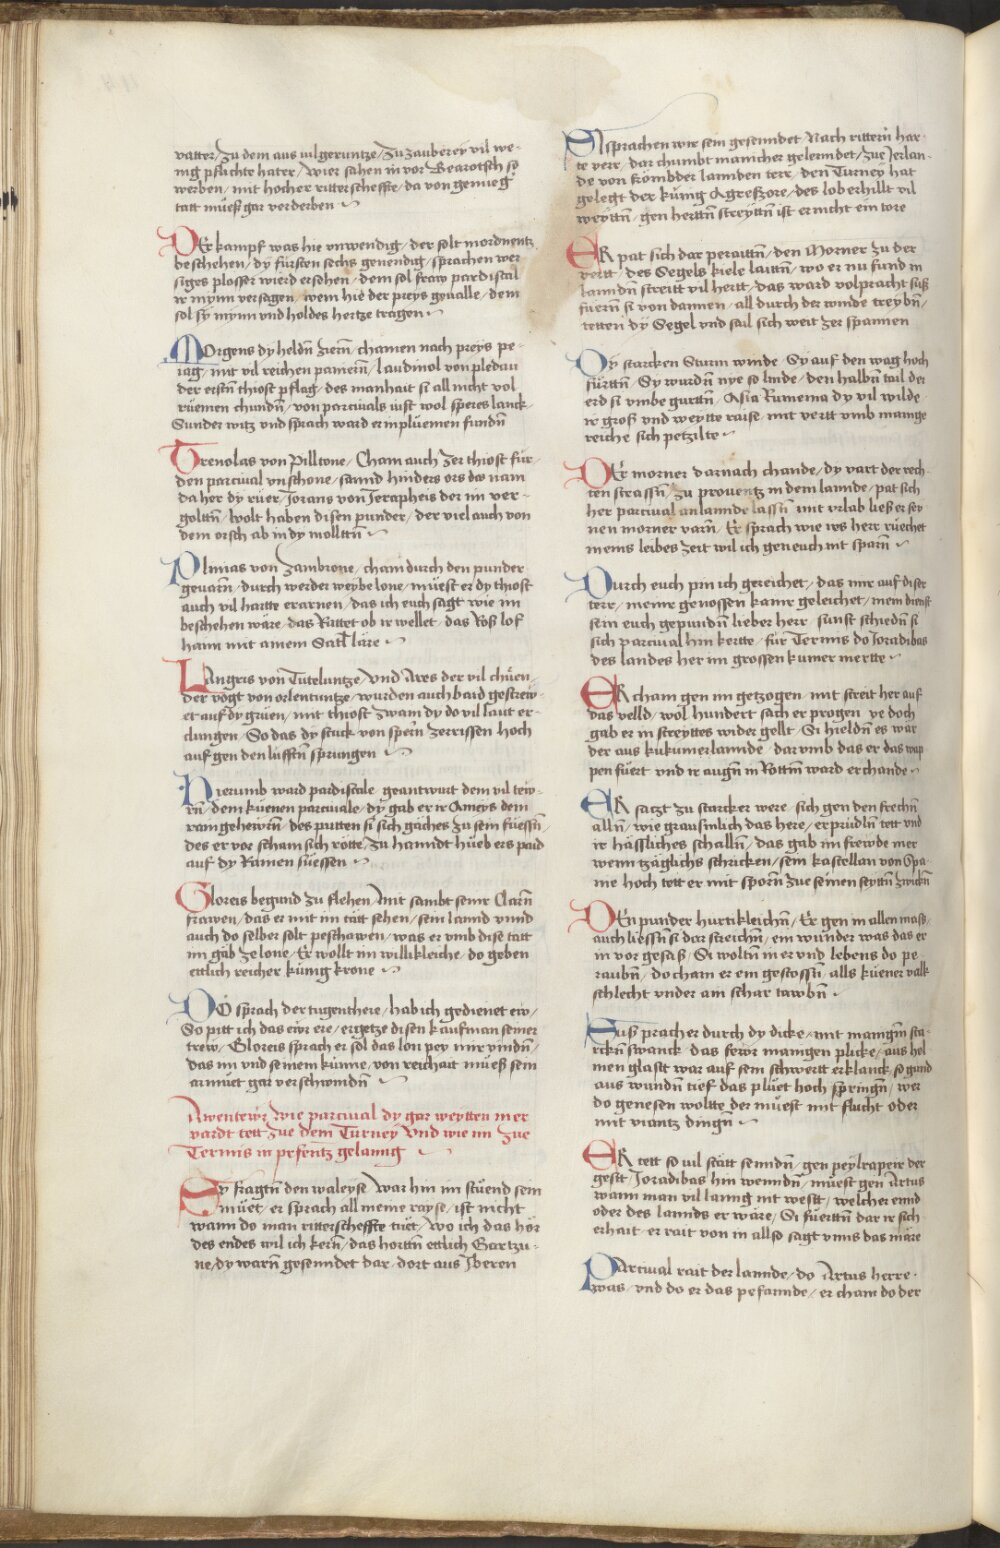 vatter / zu dem aus vilgeruntze / Zu zauberey vil we-
nig pflichte hater / wier sahen in vor Bearotsch so
werben / mit hocher ritterscheffte / da von genueg
tatt müeß gar verderben
DEr kampf was hie vnwendig / der solt mordnentz
beschehen / dy fürsten sechs genendig / sprachen wer
siges plosser wierd ersehen / dem sol fraw pardiscal
ir mynn versagen / wem hie der preys geualle / dem
sol sy mynn vnd holdes hertze tragen
MOrgens dy heldñ ziern / chamen nach preys pe-
iag / mit vil reichen panierñ / laudinol von pledau
der erstñ thiost pflag / des manhait si all nicht vol
rüemen chundñ / von parcivals iust wol speres lanck
Sunder witz vnd sprach ward er in plüemen fundñ
Trenolas von Pilltone / Cham auch zer thiost für
den parcival vnschone / sannd hinders ors do nam
da her dy rüer / Jorans von Jerapheis der im ver-
golttñ / wolt haben disen punder / der viel auch von
dem orsch ab in dy mollttñ
Plimas von Zambrone / cham durch den punder
geuarñ / durch werder weybe lone / müest er dy thiost
auch vil hartte erarnen / das ich euch sagt wie im
beschehen wäre / das Rittet ob ir wellet / das Roß lof
hann mit ainem Satl läre
LAngris von Tuteluntze / vnd Ares der vil chüen
der vogt von orlentuntze / wurden auch baid gestrew-
et auf dy grüen / mit thiost zwam dy do vil laut er-
clungen / So das dy stuck von sperñ zerrissen hoch
auf gen den lüfftñ sprungen
Hierumb ward pardiscale geantwurt dem vil tew-
rñ / dem küenen parcivale / dy gab er ir Ameys dem
ram gehewrñ / des putten si sich gäches zu sein füessñ
des er vor scham sich rötte / zu hanndt hüeb ers paid
auf dy Ramen süessen
Gloreis begund zu flehen / Mit sambt seinr Clarñ
frawen / das er mit im tätt sehen / sein lannd vnnd
auch do selber solt peschawen / was er vmb dise tatt
im gäb ze lone / Er wollt im willikleiche / do geben
ettlich reicher künig krone
DO sprach der tugenthere / hab ich gedienet ew /
So pitt ich das ewr ere / ergetze disen kaufman seiner
trew / Gloreis sprach er sol das lon pey mir vindñ /
das im vnd seinem künne / von reichait müeß sein
armuet gar verschwindñ
Awentewr wie parcival dy gar weytten mer
vardt tett zue dem Turney vnd wie im zue
Termis in presentz gelanng
Sy fragtñ den waleyse / war hin im stüend sein
müet / er sprach all meine rayse / ist nicht
wann do man ritterscheffte tüet / wo ich das hör
des endes wil ich kerñ / das horttñ ettlich Gartzu-
ne / dy warñ gesenndet dar / dort aus Jberen
SI sprachen wir sein gesenndet / Nach ritterñ har-
te verr / dar chumbt manicher gelenndet / zue Jerlan-
de von frömbder lannden terr / den Turney hat
gelegt der künig Agreszore / des lob erhillt vil
weyttñ / gen herttñ streyttñ ist er nicht ein tore
ER pat sich dar peraittñ / den Morner zu der
vertt / des Segels kiele laittñ / wo er nu fund in
lanndñ streitt vil hertt / das ward volpracht süß
füerñ si von dannen / all durch der winde treybñ /
tetten dy Segel vnd sail sich weit zer spannen
Dy starcken Sturm winde / Sy auf den wag hoch
fürttñ / Sy wurdñ nye so linde / den halbñ tail der
erd si vmbe gurttñ / Asia Rumema dy vil wilde
ir groß vnd weytte raise / mit vertt vmb manige
reiche sich petzilte
DEr morner darnach chande / dy vart der rech-
ten strassñ / zu proventz in dem lannde / pat sich
her parcival an lannde lassñ / mit vrlab ließ er sey
nen morner varñ / Er sprach wie irs herr rüechet
meins leibes zeit wil ich gen euch nit sparñ
Durch euch pin ich gereichet / das mir auf diser
terr / meinr genossen kainr geleichet / mein dienst
sein euch gepundñ lieber herr / sunst schiedñ si
sich parcival hin kertte / für Termis do Joradibas
des landes her im grossen kumer mertte
ER cham gen im getzogen / mit streit her auf
das velld / wol hundert sach er progen / ye doch
gab er in streyttes wider gellt / Si hieldñ es wär
der aus kukumerlannde / dar vmb das er das wap
pen füert vnd ir augñ in Rottñ ward erchande
ER satzt zu starcker were / sich gen den frechñ
allñ / wie grausmlich das here / er prüdlñ tett vnd
ir hässliches schallñ / das gab im frewde mer
wenn tzäglichs schricken / sein kastellan von Spa-
nie hoch tett er mit sporñ zue seinen seyttñ zwickñ
DEn punder hurtikleichñ / Er gen in allen maß /
auch liessñ si dar streichñ / ein wunder was das er
in vor gesaß / Si woltñ in er vnd lebens do pe-
raubñ / do cham er ein gestossñ / alls küener valk
schlecht vnder ain schar tawbñ
Suß prach er durch dy dicke / mit manigm sta-
rckñ swanck / das fewr manigen plicke / aus hel
men glastt war auf sein schwertt erklanck / so gund
aus wundñ tief das plüet hoch springñ / wer
do genesen woltte / der müest mit flucht oder
mit viantz dingñ
ER tett so vil stätt senndñ / gen peylrapere der
gestt / Joradibas hin wenndñ / müest gen Artus
wann man vil lanng nit westt / welcher ennd
oder des lannds er wäre / Si füerttñ dar ir sich-
erhait / er rait von in allso sagt vnns das märe
PArcival rait der lannde / do Artus herre
was / vnd do er das pefannde / er cham do der